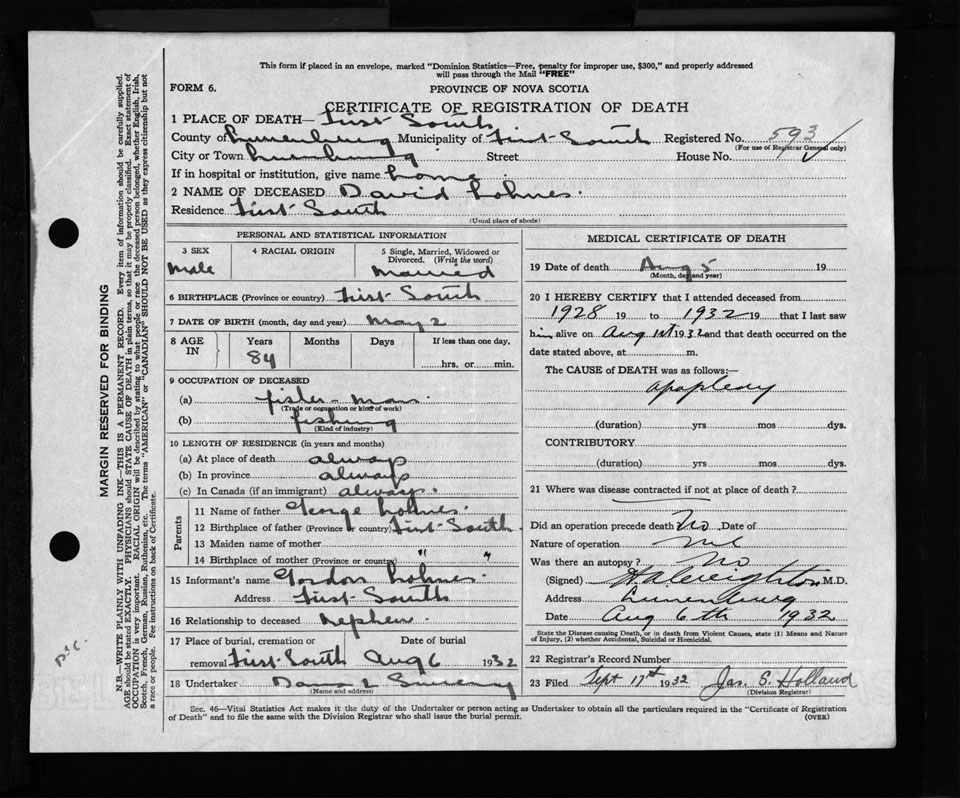 This form if placed in an envelope, marked "Dominion Statistics—Free, penalty for improper use, $300," and properly addressed
will pass through the Mail "FREE"
FORM 6.
PROVINCE OF NOVA SCOTIA
CERTIFICATE OF REGISTRATION OF DEATH
1 PLACE OF DEATH— First South
County of Lunenburg Municipality of First South Registered No. 593
(For use of Registrar General only)
City or Town Lunenburg Street House No.
If in hospital or institution, give name home
2 NAME OF DECEASED David Lohnes
Residence First South
(Usual place of abode)
PERSONAL AND STATISTICAL INFORMATION
3 SEX 4 RACIAL ORIGIN 5 Single, Married, Widowed or
Divorced. (Write the word)
Male Married
6 BIRTHPLACE (Province or country) First South
7 DATE OF BIRTH (month, day and year) May 2
8 AGE IN Years Months Days If less than one day,
84 hrs. or min.
9 OCCUPATION OF DECEASED
(a) fisher-man
(Trade or occupation or kind of work)
(b) fishing
(Kind of industry)
10 LENGTH OF RESIDENCE (in years and months)
(a) At place of death always
(b) In province always
(c) In Canada (if an immigrant) always
Parents
11 Name of father George Lohnes
12 Birthplace of father (Province or country) First South
13 Maiden name of mother
14 Birthplace of mother (Province or country) " "
15 Informant's name Gordon Lohnes
Address First South
16 Relationship to deceased nephew
17 Place of burial, cremation or Date of burial
removal First South Aug 6 1932
18 Undertaker
(Name and address)
MEDICAL CERTIFICATE OF DEATH
19 Date of death Aug 5 19
(Month, day and year)
20 I HEREBY CERTIFY that I attended deceased from
1928 19 to 1932 19 that I last saw
him alive on Aug 1st 1932 and that death occurred on the
date stated above, at m.
The CAUSE of DEATH was as follows:—
apoplexy
(duration) yrs mos dys.
CONTRIBUTORY
(duration) yrs mos dys.
21 Where was disease contracted if not at place of death?
Did an operation precede death No Date of
Nature of operation
Was there an autopsy? No
(Signed) M.D.
Address Lunenburg
Date Aug 6th 1932
State the Disease causing Death, or in death from Violent Causes, state (1) Means and Nature
of Injury, (2) whether Accidental, Suicidal or Homicidal.
22 Registrar's Record Number
23 Filed Sept 17th 1932 Jas. S. Holland
(Division Registrar)
Sec. 46—Vital Statistics Act makes it the duty of the Undertaker or person acting as Undertaker to obtain all the particulars required in the "Certificate of Registration
of Death" and to file the same with the Division Registrar who shall issue the burial permit. (OVER)
MARGIN RESERVED FOR BINDING
N.B.—WRITE PLAINLY WITH UNFADING INK—THIS IS A PERMANENT RECORD. Every item of information should be carefully supplied.
AGE should be stated EXACTLY. PHYSICIANS should STATE CAUSE OF DEATH in plain terms, so that it may be properly classified. Exact statement of
OCCUPATION is very important. RACIAL ORIGIN will be described by stating to what people or race the deceased person belonged, whether English, Irish,
Scotch, French, German, Russian, Ruthenian, etc. The terms "AMERICAN" or "CANADIAN" SHOULD NOT BE USED as they express citizenship but not
a race or people. See instructions on back of Certificate.